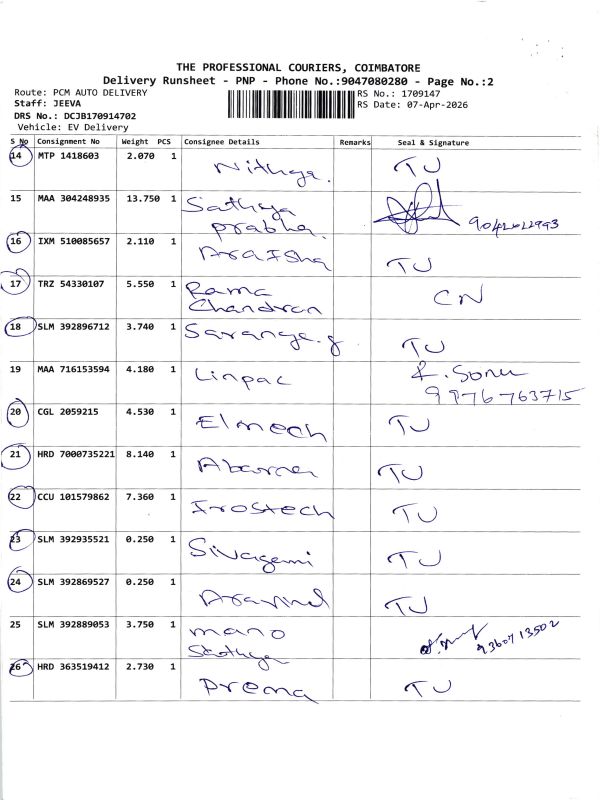 THE PROFESSIONAL COURIERS, COIMBATORE
Delivery Runsheet - PNP - Phone No.:9047080280 - Page No.:2
Route: PCM AUTO DELIVERY RS No.: 1709147
Staff: JEEVA RS Date: 07-Apr-2026
DRS No.: DCJB170914702
Vehicle: EV Delivery
S No Consignment No Weight PCS Consignee Details Remarks Seal & Signature
14 MTP 1418603 2.070 1 Nithya. TU
15 MAA 304248935 13.750 1 Sathya
prabha.
16 IXM 510085657 2.110 1 Araisha TU
17 TRZ 54330107 5.550 1 Rama CN
Chandran
18 SLM 392896712 3.740 1 Saranya.g TU
19 MAA 716153594 4.180 1 Linpac K. Sonu
9976763715
20 CGL 2059215 4.530 1 Elmech TU
21 HRD 7000735221 8.140 1 Abarna TU
22 CCU 101579862 7.360 1 Irostech TU
23 SLM 392935521 0.250 1 Sivagami TU
24 SLM 392869527 0.250 1 Aravind TU
25 SLM 392889053 3.750 1 mano 9360713502
Sathya
26 HRD 363519412 2.730 1 Prema TU